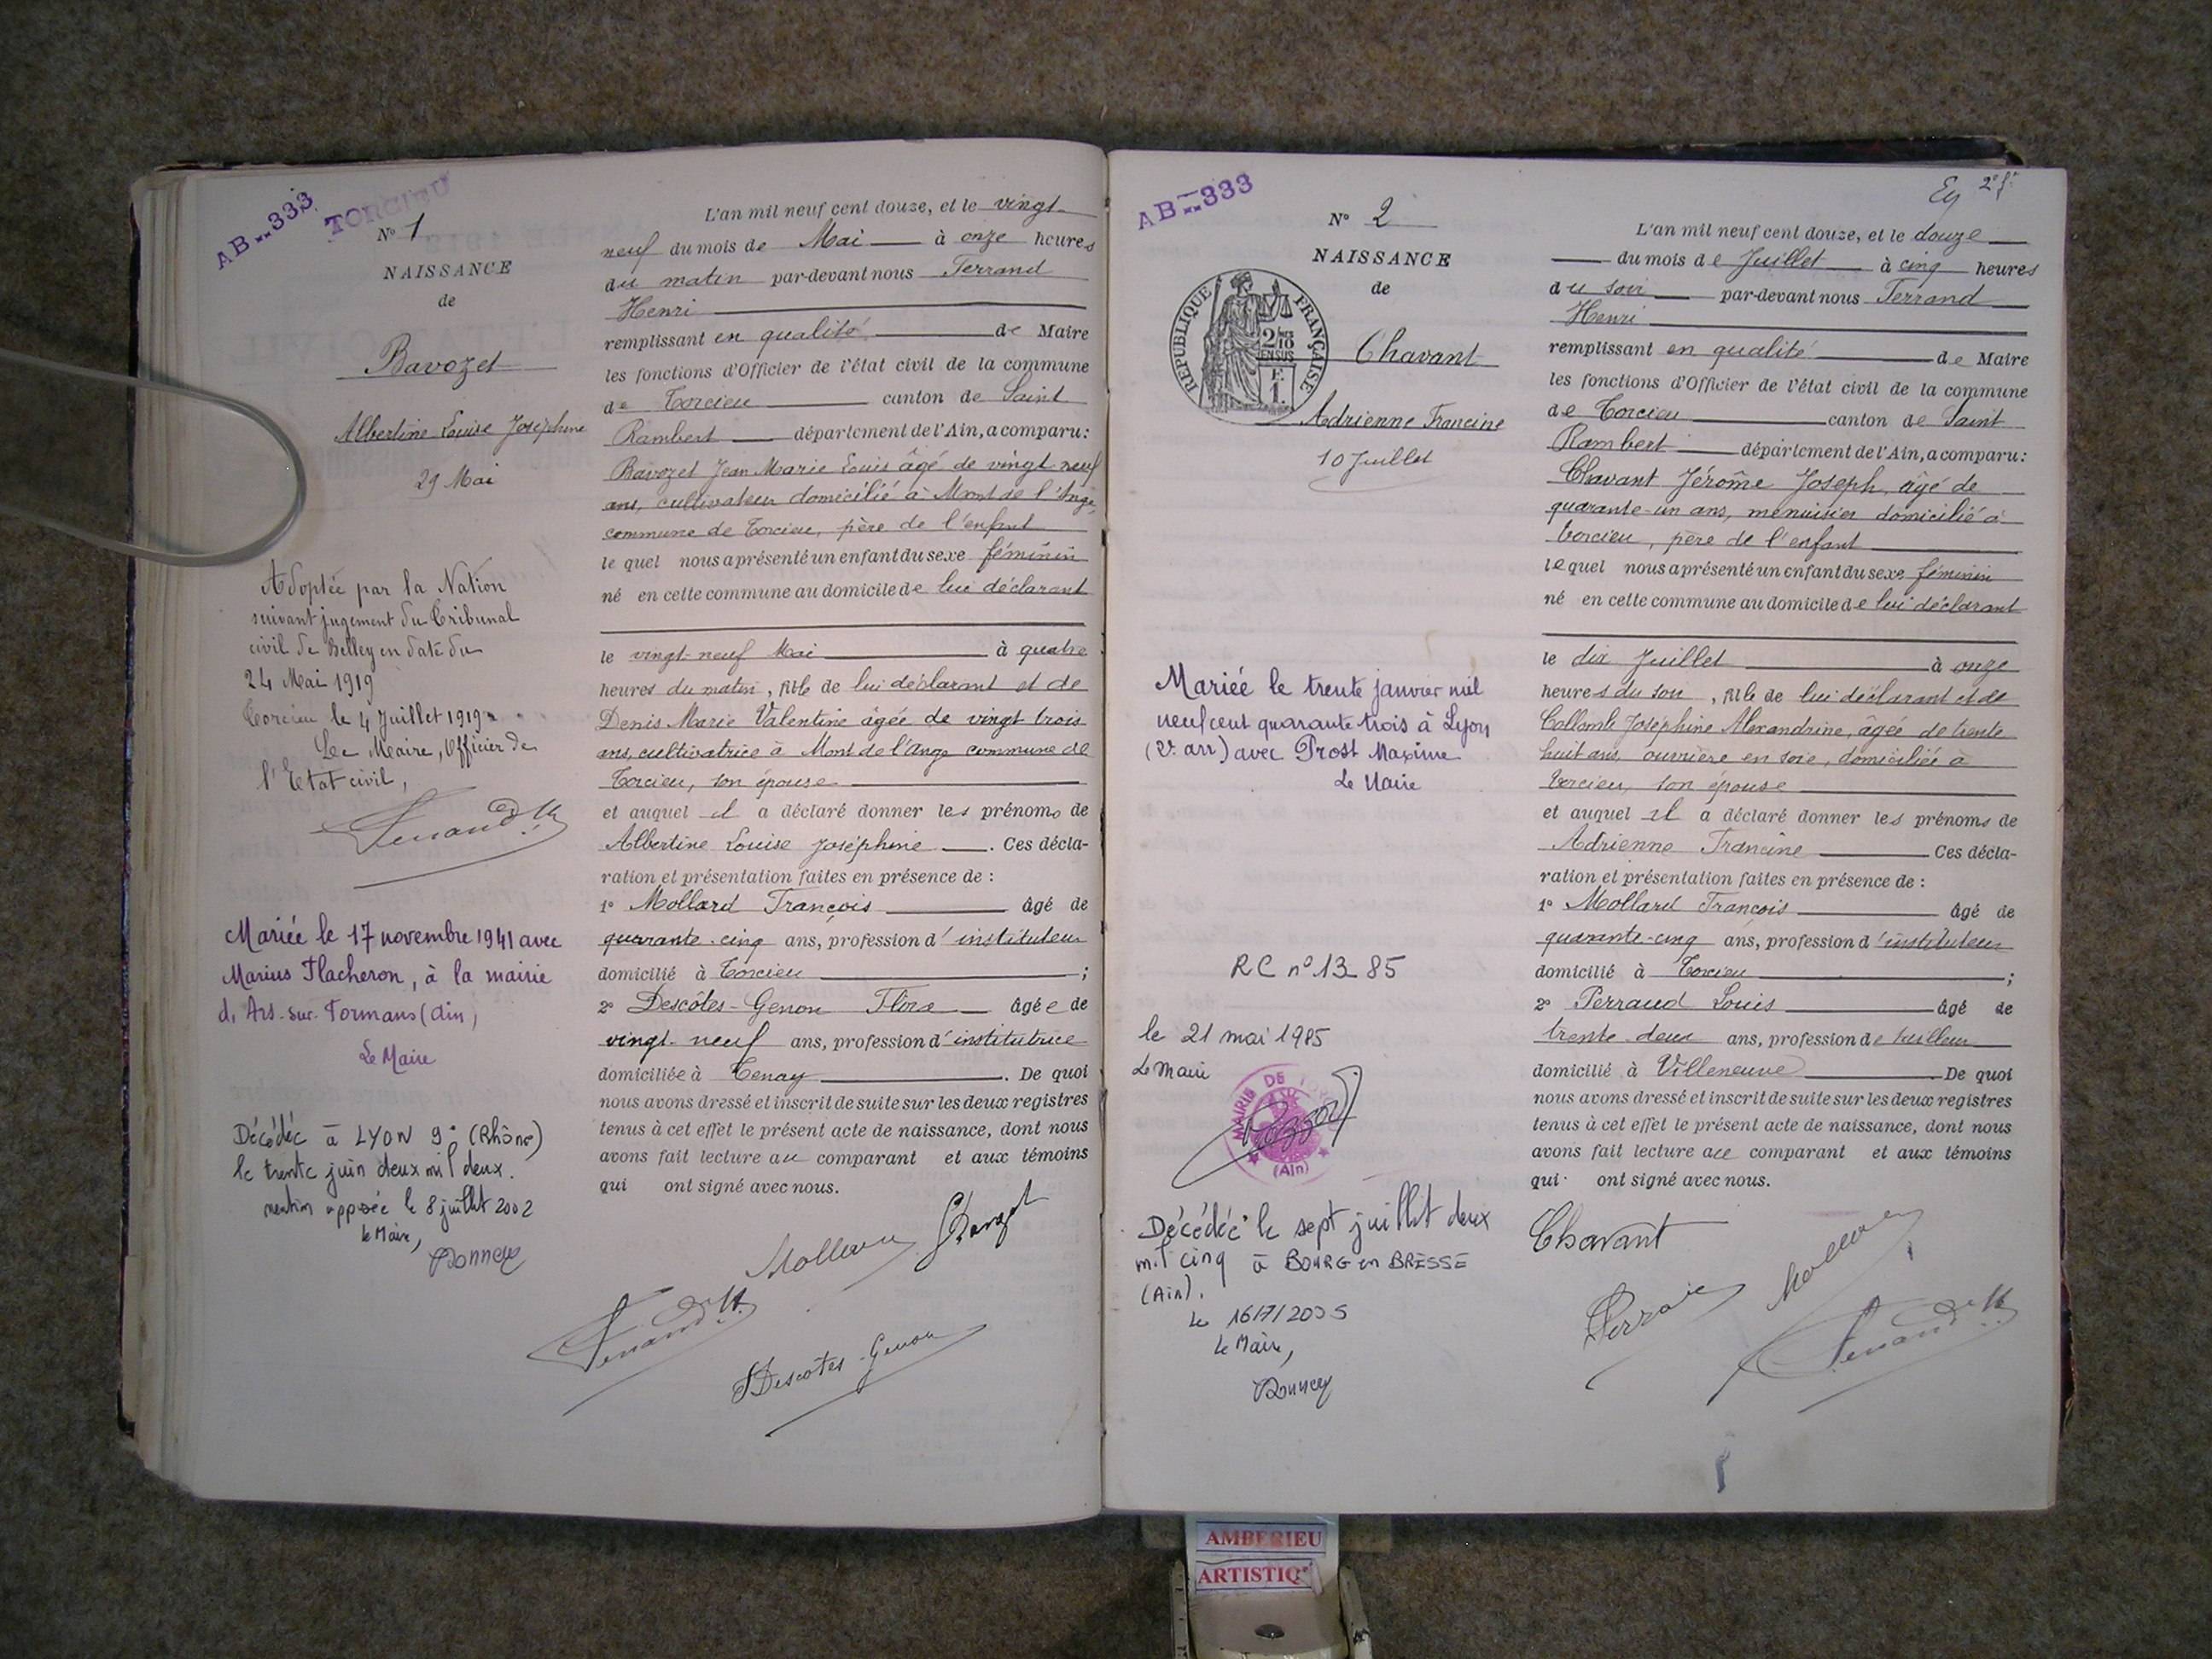 AB 333
TORCIEU
N° 1
NAISSANCE
de
Bavozet
Albertine Louise Joséphine
29 Mai
Adoptée par la Nation
suivant jugement du Tribunal
civil de Belley en date du
24 Mai 1919
Torcieu le 4 Juillet 1919
Le Maire, Officier de
l'Etat civil,
Mariée le 17 novembre 1941 avec
Marius Flacheron, à la mairie
d'Ars-sur-Formans (Ain)
Le Maire
Décédée à LYON 9e (Rhône)
le trente juin deux mil deux.
mention apposée le 8 juillet 2002
le Maire,
L'an mil neuf cent douze, et le vingt-
neuf du mois de Mai à onze heures
du matin par-devant nous Ferrand
Henri
remplissant en qualité de Maire
les fonctions d'Officier de l'état civil de la commune
de Torcieu canton de Saint
Rambert département de l'Ain, a comparu:
Bavozet Jean Marie Louis âgé de vingt neuf
ans, cultivateur domicilié à Mont de l'Ange,
commune de Torcieu, père de l'enfant
le quel nous a présenté un enfant du sexe féminin
né en cette commune au domicile de lui déclarant
le vingt-neuf Mai à quatre
heures du matin, fille de lui déclarant et de
Denis Marie Valentine âgée de vingt trois
ans, cultivatrice à Mont de l'Ange commune de
Torcieu, son épouse
et auquel il a déclaré donner les prénoms de
Albertine Louise Joséphine . Ces décla-
ration et présentation faites en présence de :
1° Mollard François âgé de
quarante-cinq ans, profession d'instituteur
domicilié à Torcieu ;
2° Descôtes-Genon Flora âgée de
vingt-neuf ans, profession d'institutrice
domiciliée à Tenay . De quoi
nous avons dressé et inscrit de suite sur les deux registres
tenus à cet effet le présent acte de naissance, dont nous
avons fait lecture au comparant et aux témoins
qui ont signé avec nous.
Descôtes-Genon
AB 333
N° 2
NAISSANCE
de
RÉPUBLIQUE FRANÇAISE
Chavant
Adrienne Francine
10 Juillet
Mariée le trente janvier mil
neuf cent quarante trois à Lyon
(2e arr) avec Prost Maxime
Le Maire
RC n° 13-85
le 21 mai 1985
Le Maire
MAIRIE DE
(Ain)
Décédée le sept juillet deux
mil cinq à BOURG en BRESSE
(Ain).
Le 16/7/2005
le Maire,
2e f.
L'an mil neuf cent douze, et le douze
du mois de Juillet à cinq heures
du soir par-devant nous Ferrand
Henri
remplissant en qualité de Maire
les fonctions d'Officier de l'état civil de la commune
de Torcieu canton de Saint
Rambert département de l'Ain, a comparu:
Chavant Jérôme Joseph, âgé de
quarante-un ans, menuisier domicilié à
Torcieu, père de l'enfant
le quel nous a présenté un enfant du sexe féminin
né en cette commune au domicile de lui déclarant
le dix Juillet à onze
heures du soir, fille de lui déclarant et de
Collomb Joséphine Alexandrine, âgée de trente
huit ans, ouvrière en soie, domiciliée à
Torcieu, son épouse
et auquel il a déclaré donner les prénoms de
Adrienne Francine Ces décla-
ration et présentation faites en présence de :
1° Mollard François âgé de
quarante-cinq ans, profession d'instituteur
domicilié à Torcieu ;
2° Perraud Louis âgé de
trente-deux ans, profession de tailleur
domicilié à Villeneuve . De quoi
nous avons dressé et inscrit de suite sur les deux registres
tenus à cet effet le présent acte de naissance, dont nous
avons fait lecture au comparant et aux témoins
qui ont signé avec nous.
Chavant
AMBERIEU
ARTISTIQ